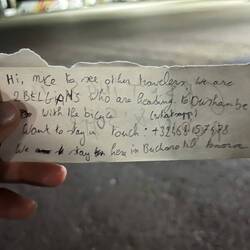 Hi, nice to see other travelers, we are
2 BELGIANS who are heading to Dushambe
with the bicycle (whatsapp)
Want to stay in touch : +32468157478
We stay here in Buchara till tomorrow